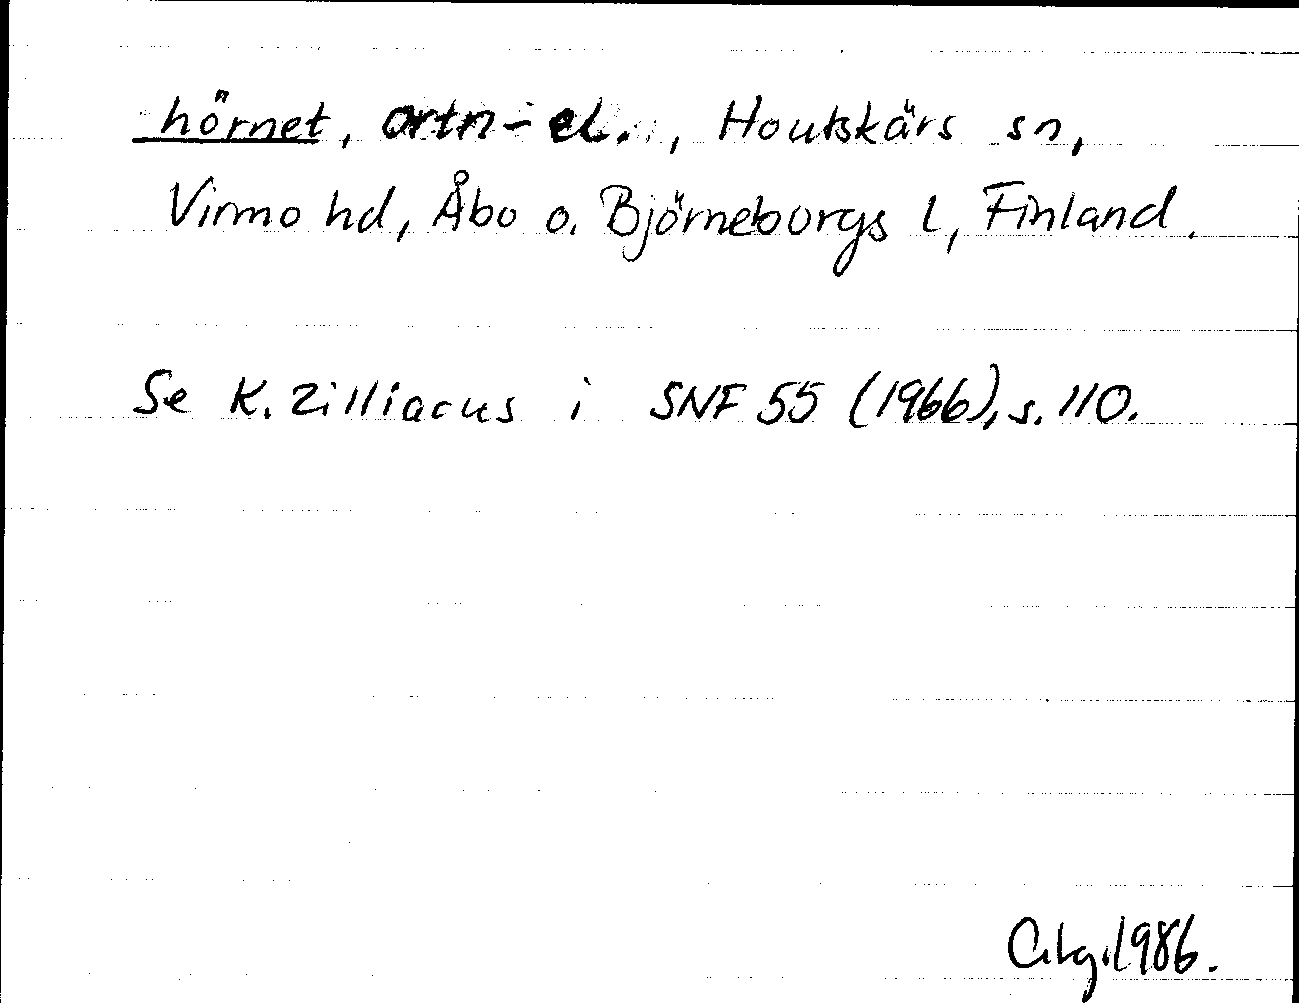 hörnet, ortn-el., Houtskärs sn,
Virmo hd, Åbo o. Björneborgs l, Finland.
Se K. Zilliacus i SNF 55 (1966), s. 110.
1986.